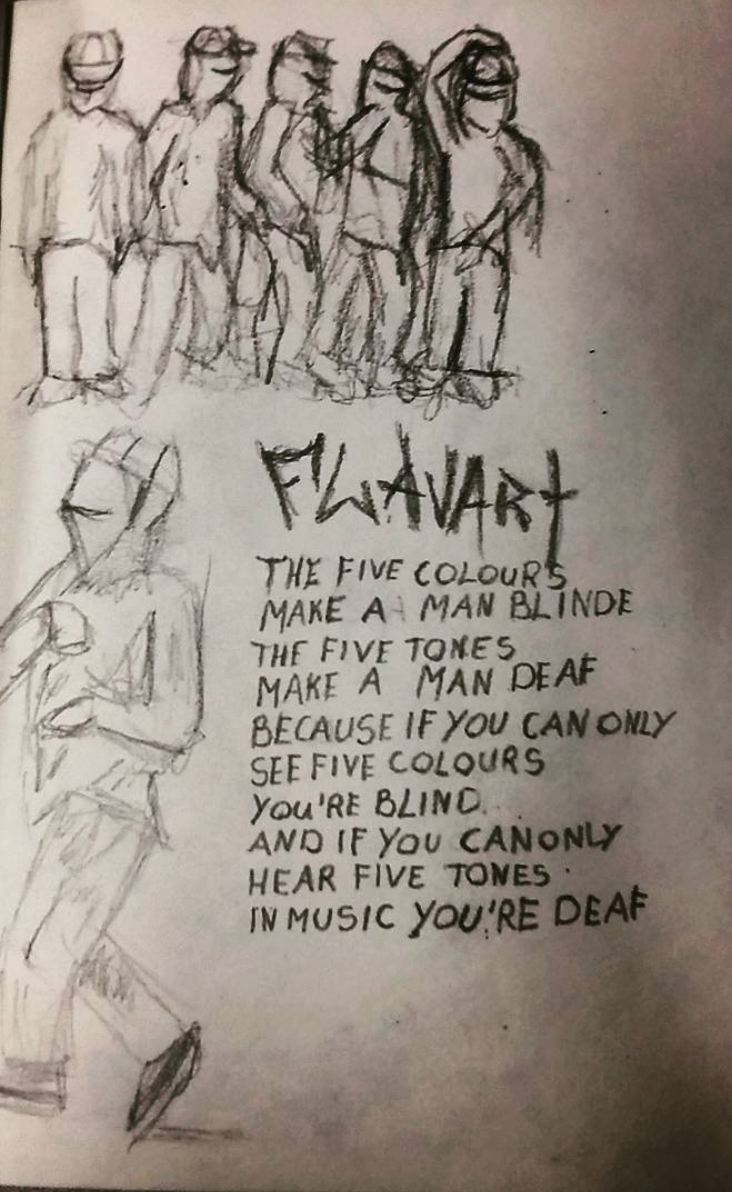 FLAVART
THE FIVE COLOURS
MAKE A MAN BLINDE
THE FIVE TONES
MAKE A MAN DEAF
BECAUSE IF YOU CAN ONLY
SEE FIVE COLOURS
YOU'RE BLIND
AND IF YOU CAN ONLY
HEAR FIVE TONES
IN MUSIC YOU'RE DEAF